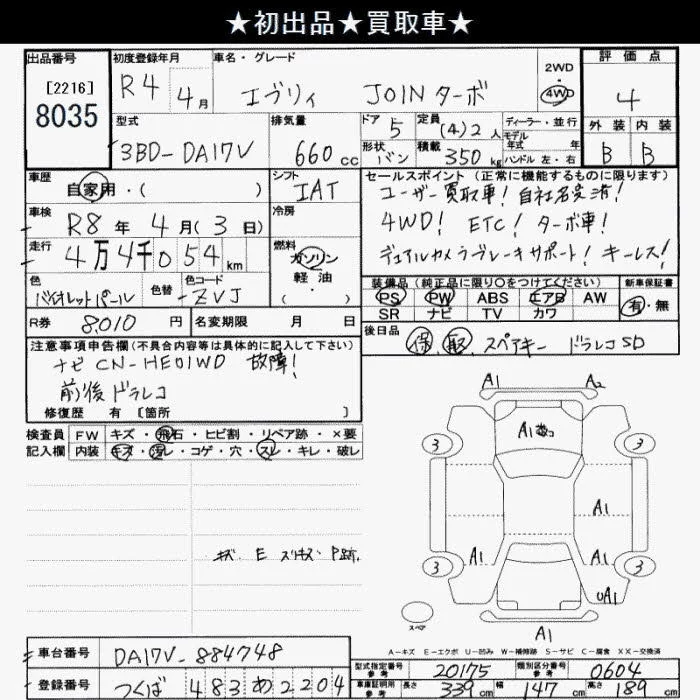 ★初出品★買取車★
出品番号
[2216]
8035
初度登録年月
R4 4月
車名・グレード
エブリィ JOINターボ
2WD
・
4WD
評価点
4
外装 内装
B B
型式
3BD-DA17V
排気量
660cc
ドア
5
形状
バン
定員
(4)2人
積載
350kg
ディーラー・並行
モデル
年式 年
ハンドル 左・右
車歴
自家用・( )
シフト
IAT
車検
R8年4月(3日)
冷房
走行
4万4千054km
燃料
ガソリン
軽油
( )
色
バイオレットパール
色替
色コード
ZVJ
R券 8,010円
名変期限 月 日
セールスポイント(正常に機能するものに限ります)
ユーザー買取車!自社名変済!
4WD! ETC! ターボ車!
デュアルカメラブレーキサポート!キーレス!
装備品(純正品に限り○をつけてください)
PS PW ABS エアB AW
SR ナビ TV カワ
新車保証書
有・無
後日品
保 取 スペアキー ドラレコSD
注意事項申告欄(不具合内容等は具体的に記入して下さい)
ナビ CN-HE01WD 故障!
前後ドラレコ
修復歴 有〔箇所 〕
検査員
記入欄
FW キズ・飛石・ヒビ割・リペア跡・×要
内装 キズ・汚レ・コゲ・穴・スレ・キレ・破レ
キズ E スリキズ P跡.
A1 A2
A1
3 3
A1
A1 A1
3 3
UA1
A1
スペア
A-キズ E-エクボ U-凹み W-補修跡 S-サビ C-腐食 XX-交換済
車台番号 DA17V-884748
登録番号 つくば 483 あ 2204
型式指定番号
参考
20175
類別区分番号
参考
0604
車庫証明用
参考
長さ 339cm 幅 147cm 高さ 189cm